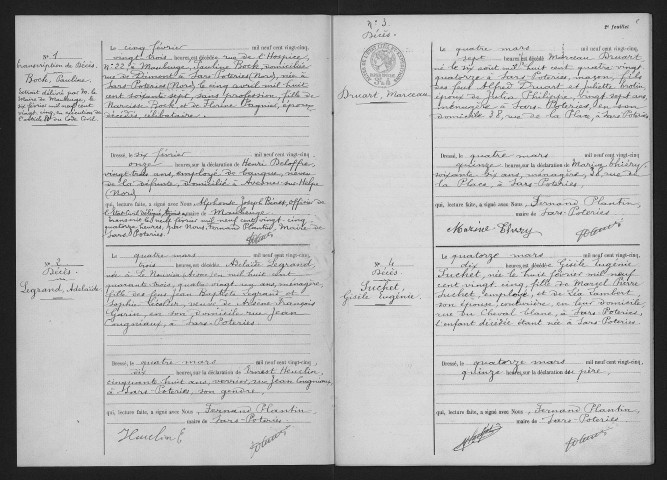 N° 1
transcription de Décès.
Bock, Pauline.
Extrait délivré par M. le
Maire de Maubeuge, le
Le cinq février mil neuf cent vingt-cinq,
vingt trois heures, est décédée rue de l'Hospice
N° 22, à Maubeuge, Pauline Bock, domiciliée
rue de Dimont à Sars Poteries (Nord), née à
Sars Poteries (Nord) le cinq avril mil huit
cent soixante sept, sans profession, fille de
Narcisse Bock et de Florine Pagniet, époux
décédés, célibataire.
Dressé, le six février mil neuf cent vingt-cinq,
onze heures, sur la déclaration de Henri Deloffre,
vingt trois ans, employé de banque, neveu
de la défunte, domicilié à Avesnes sur Helpe
(Nord)
qui, lecture faite, a signé avec Nous, Alphonse Joseph officier de
Maubeuge
transcrit le neuf février mil neuf cent vingt cinq
quatorze heures, par Nous, Fernand Plantin, Maire de
Sars Poteries.
N° 2
Décès.
Legrand, Adélaïde
Le quatre mars mil neuf cent vingt-cinq,
trois heures, est décédée Adélaïde Legrand,
née à mil huit cent
quarante trois, quatre vingt un ans, ménagère,
fille des feus Jean Baptiste Legrand et
Sophie veuve de Arsène François
Garin, en son domicile rue Jean
à Sars Poteries
Dressé, le quatre mars mil neuf cent vingt-cinq,
dix heures, sur la déclaration de Ernest Heuclin,
cinquante huit ans, verrier, rue Jean
à Sars Poteries, son gendre,
qui, lecture faite, a signé avec Nous, Fernand Plantin
maire de Sars-Poteries.
Heuclin E
2e feuillet
N° 3
Décès.
Druart, Marceau
Le quatre mars mil neuf cent vingt-cinq,
sept heures, est décédé Marceau Druart
né le six août mil huit cent quatre vingt
quatorze à Sars Poteries, maçon, fils
des feus Alfred Druart et Juliette
époux de Julia Philippe, vingt sept ans,
ménagère à Sars Poteries, en son
domicile 38, rue de la Place, à Sars-Poteries.
Dressé, le quatre mars mil neuf cent vingt-cinq,
quinze heures, sur la déclaration de
soixante six ans, ménagère, 38, rue de
la Place, à Sars Poteries,
qui, lecture faite, a signé avec Nous, Fernand Plantin
maire de Sars Poteries
N° 4
Décès.
Suchet,
Gisèle Eugénie.
Le quatorze mars mil neuf cent vingt-cinq,
dix heures, est décédée Gisèle Eugénie
Suchet, née le huit février mil neuf
cent vingt cinq, fille de Marcel Pierre
Suchet, employé, et de Léa Lambert
son épouse, en leur domicile
rue du Cheval blanc, à Sars-Poteries,
l'enfant décédée étant née à Sars Poteries
Dressé, le quatorze mars mil neuf cent vingt-cinq,
quinze heures, sur la déclaration de son père,
qui, lecture faite, a signé avec Nous, Fernand Plantin
maire de Sars Poteries.